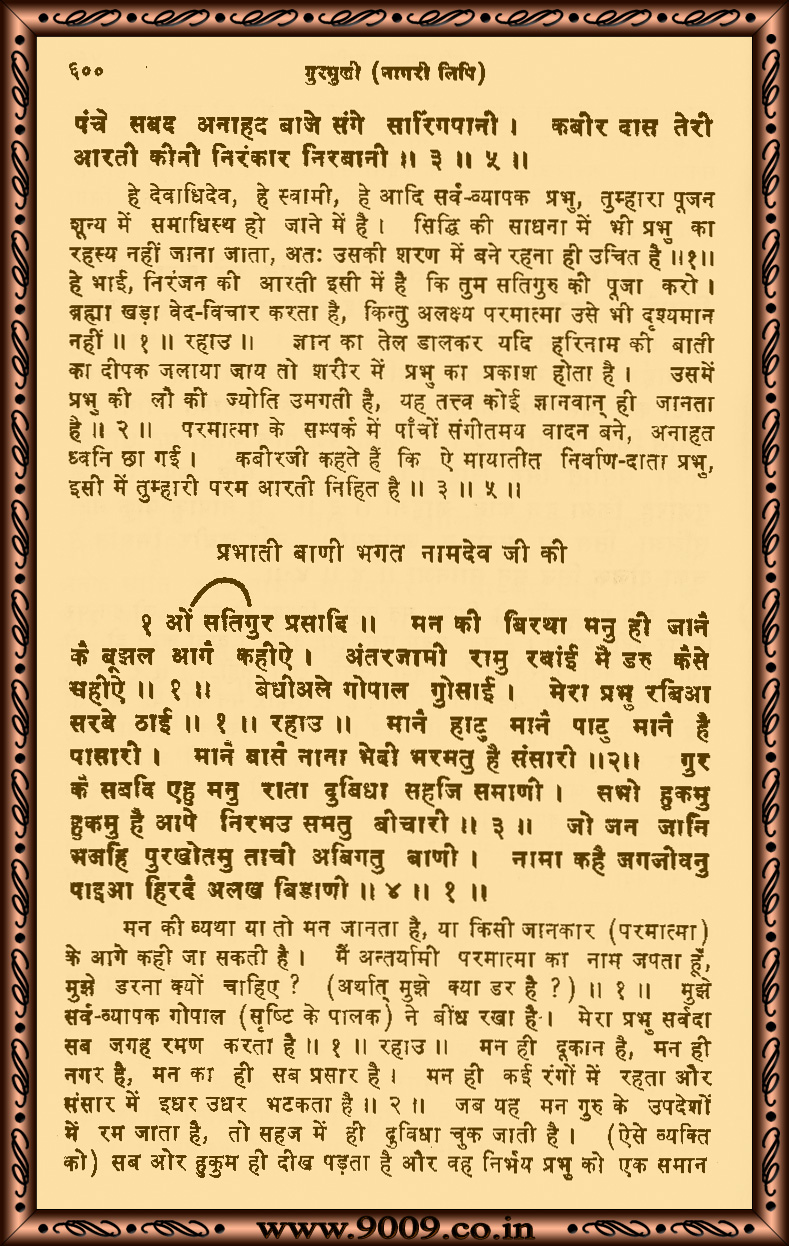 ६०० गुरमुखी (नागरी लिपि)
पंचे सबद अनाहद बाजे संगे सारिंगपानी । कबीर दास तेरी
आरती कीनी निरंकार निरबानी ॥ ३ ॥ ५ ॥
हे देवाधिदेव, हे स्वामी, हे आदि सर्व-व्यापक प्रभु, तुम्हारा पूजन
शून्य में समाधिस्थ हो जाने में है । सिद्धि की साधना में भी प्रभु का
रहस्य नहीं जाना जाता, अतः उसकी शरण में बने रहना ही उचित है ॥१॥
हे भाई, निरंजन की आरती इसी में है कि तुम सतिगुरु की पूजा करो ।
ब्रह्मा खड़ा वेद-विचार करता है, किन्तु अलक्ष्य परमात्मा उसे भी दृश्यमान
नहीं ॥ १ ॥ रहाउ ॥ ज्ञान का तेल डालकर यदि हरिनाम की बाती
का दीपक जलाया जाय तो शरीर में प्रभु का प्रकाश होता है । उसमें
प्रभु की लौ की ज्योति उमगती है, यह तत्त्व कोई ज्ञानवान् ही जानता
है ॥ २ ॥ परमात्मा के सम्पर्क में पाँचों संगीतमय वादन बने, अनाहत
ध्वनि छा गई । कबीरजी कहते हैं कि ऐ मायातीत निर्वाण-दाता प्रभु,
इसी में तुम्हारी परम आरती निहित है ॥ ३ ॥ ५ ॥
प्रभाती बाणी भगत नामदेव जी की
१ ओं सतिगुर प्रसादि ॥ मन की बिरथा मनु ही जानै
कै बूझल आगै कहीऐ । अंतरजामी रामु रवांई मै डरु कैसे
चहीऐ ॥ १ ॥ बेधीअले गोपाल गोुसाई । मेरा प्रभु रविआ
सरबे ठाई ॥ १ ॥ रहाउ ॥ मानै हाटु मानै पाटु मानै है
पासारी । मानै बासै नाना भेदी भरमतु है संसारी ॥२॥ गुर
कै सबदि एहु मनु राता दुबिधा सहजि समाणी । सभो हुकमु
हुकमु है आपे निरभउ समतु बीचारी ॥ ३ ॥ जो जन जानि
भजहि पुरखोतमु ताची अबिगतु बाणी । नामा कहै जगजीवनु
पाइआ हिरदै अलख बिडाणी ॥ ४ ॥ १ ॥
मन की व्यथा या तो मन जानता है, या किसी जानकार (परमात्मा)
के आगे कही जा सकती है । मैं अन्तर्यामी परमात्मा का नाम जपता हूँ,
मुझे डरना क्यों चाहिए ? (अर्थात् मुझे क्या डर है ?) ॥ १ ॥ मुझे
सर्व-व्यापक गोपाल (सृष्टि के पालक) ने बींध रखा है । मेरा प्रभु सर्वदा
सब जगह रमण करता है ॥ १ ॥ रहाउ ॥ मन ही दूकान है, मन ही
नगर है, मन का ही सब प्रसार है । मन ही कई रंगों में रहता और
संसार में इधर उधर भटकता है ॥ २ ॥ जब यह मन गुरु के उपदेशों
में रम जाता है, तो सहज में ही दुविधा चुक जाती है । (ऐसे व्यक्ति
को) सब ओर हुकुम ही दीख पड़ता है और वह निर्भय प्रभु को एक समान
www.9009.co.in